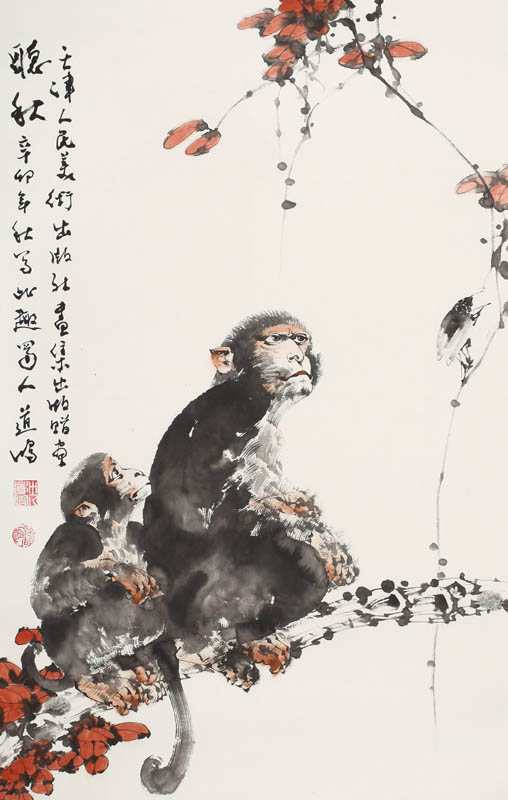 天津人民美術出版社畫集出版贈
聽秋 辛卯年秋寫此趣蜀人道鴻